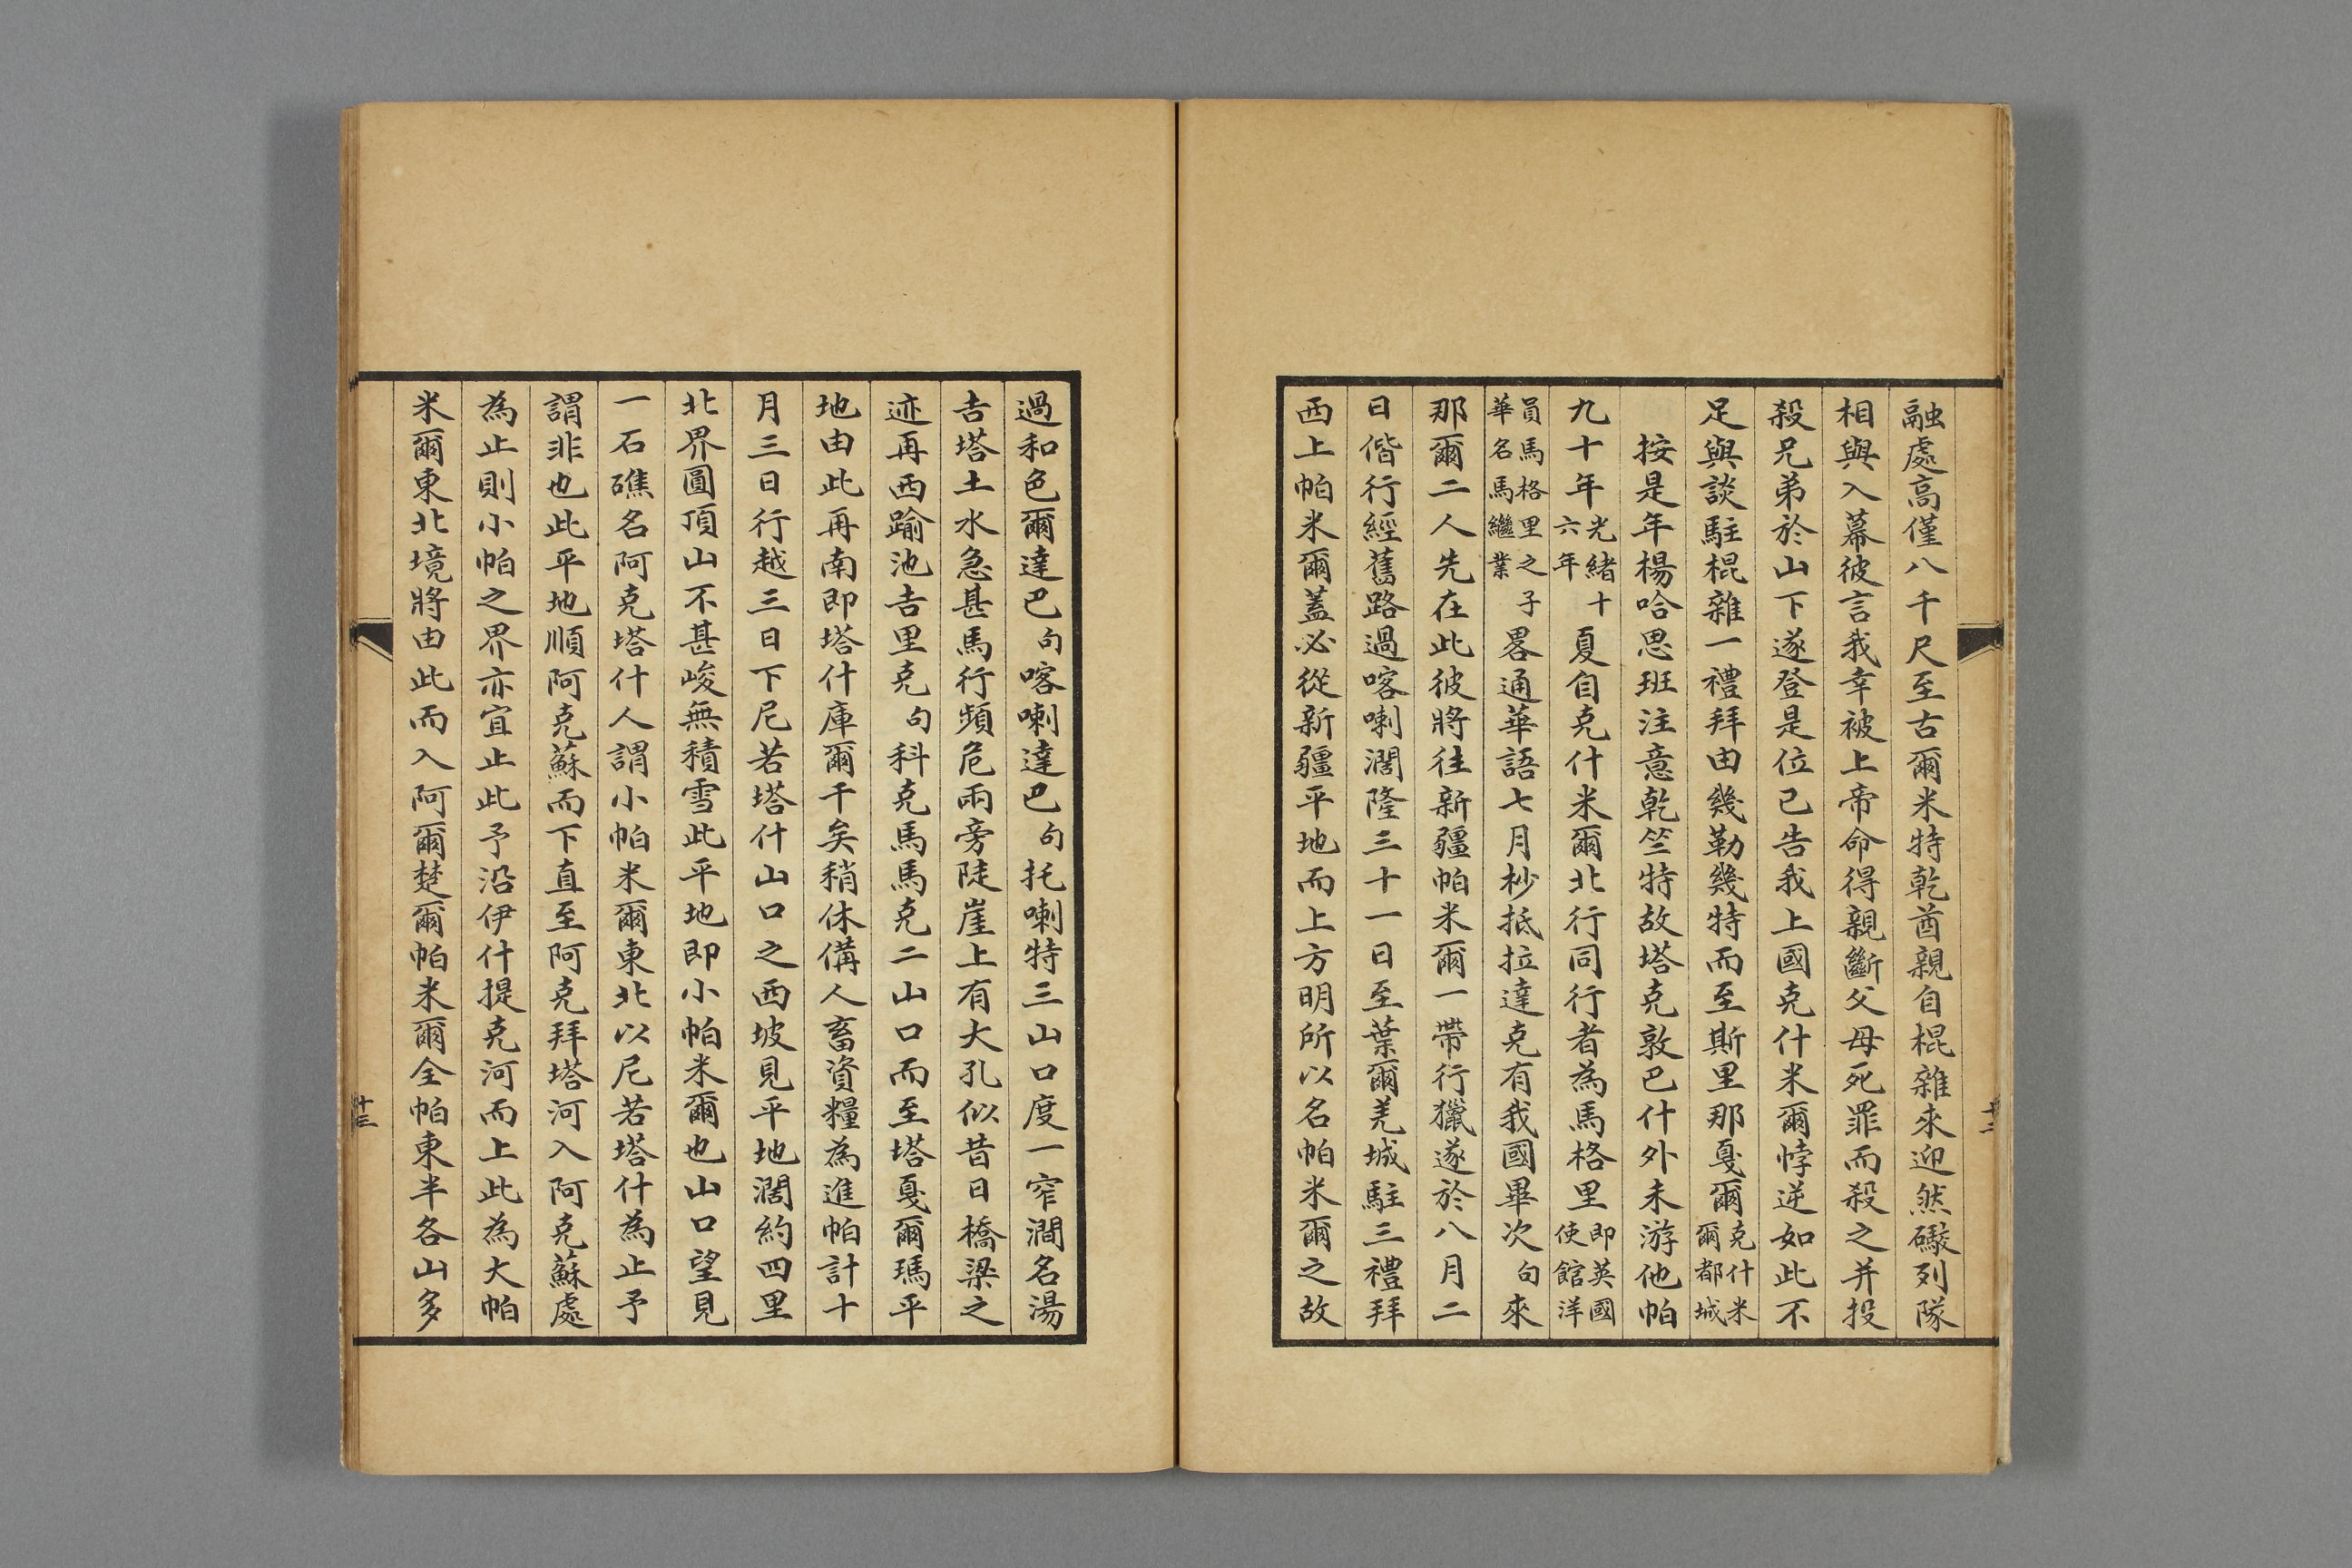 融處高僅八千尺至古爾米特乾酋親自棍雜來迎然礮列隊
相與入幕彼言我幸被上帝命得親斷父母死罪而殺之并投
殺兄弟於山下遂登是位已告我上國克什米爾悖逆如此不
足與談駐棍雜一禮拜由幾勒幾特而至斯里那戛爾克什米爾都城
按是年楊哈思班注意乾竺特故塔克敦巴什外未游他帕
九十年光緒十六年夏自克什米爾北行同行者為馬格里即英國使館洋
員馬格里之子華名馬繼業畧通華語七月杪抵拉達克有我國畢次句來
那爾二人先在此彼將往新疆帕米爾一帶行獵遂於八月二
日偕行經舊路過喀喇濶隆三十一日至葉爾羌城駐三禮拜
西上帕米爾蓋必從新疆平地而上方明所以名帕米爾之故
十二
過和色爾達巴句喀喇達巴句托喇特三山口度一窄澗名湯
吉塔土水急甚馬行頻危兩旁陡崖上有大孔似昔日橋梁之
迹再西踰池吉里克句科克馬馬克二山口而至塔戛爾瑪平
地由此再南即塔什庫爾干矣稍休備人畜資糧為進帕計十
月三日行越三日下尼若塔什山口之西坡見平地濶約四里
北界圓頂山不甚峻無積雪此平地即小帕米爾也山口望見
一石礁名阿克塔什人謂小帕米爾東北以尼若塔什為止予
謂非也此平地順阿克蘇而下直至阿克拜塔河入阿克蘇處
為止則小帕之界亦宜止此予沿伊什提克河而上此為大帕
米爾東北境將由此而入阿爾楚爾帕米爾全帕東半各山多
十三